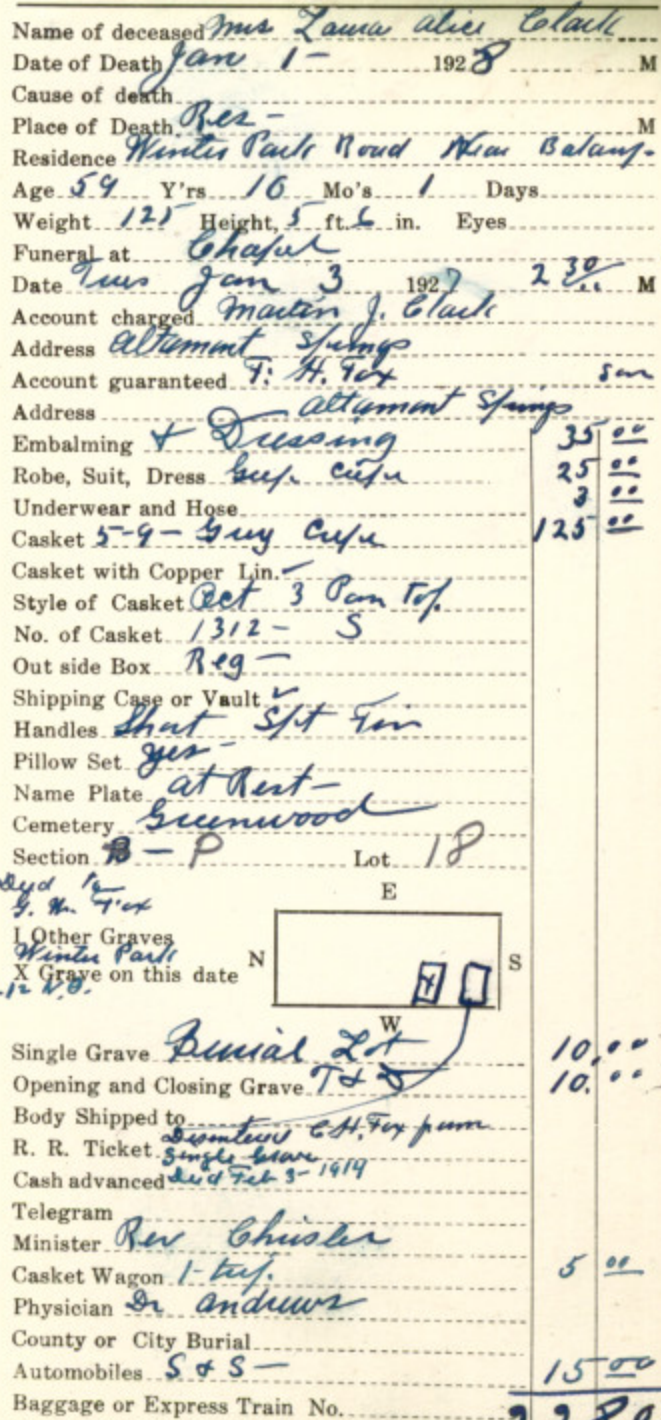 Name of deceased Mrs Laura Alice Clark
Date of Death Jan 1 - 1928 M
Cause of death
Place of Death Res - M
Residence Winter Park Road Near
Age 59 Y'rs 10 Mo's 1 Days
Weight 125 Height, 5 ft. 6 in. Eyes
Funeral at Chapel
Date Tues Jan 3 1927 2 30 M
Account charged Martin J. Clark
Address Altamont Springs
Account guaranteed T. H. Fox son
Address Altamont Springs
Embalming & Dressing 35 00
Robe, Suit, Dress Crepe 25 00
Underwear and Hose 3 00
Casket 5-9 - Grey Crepe 125 00
Casket with Copper Lin. ✓
Style of Casket Oct 3 Pan Top
No. of Casket 1312 - S
Out side Box Reg -
Shipping Case or Vault ✓
Handles Short
Pillow Set yes -
Name Plate At Rest -
Cemetery Greenwood
Section B - P Lot 18
E
Fox
I Other Graves
Winter Park
X Grave on this date N S
X
W
Single Grave Burial Lot 10.00
Opening and Closing Grave 10.00
Body Shipped to
Disinterred C.H. Fox from
R. R. Ticket Single Grave
Cash advanced Died Feb 3 - 1919
Telegram
Minister Rev
Casket Wagon 1- 5 00
Physician Dr Andrews
County or City Burial
Automobiles S & S - 15 00
Baggage or Express Train No.